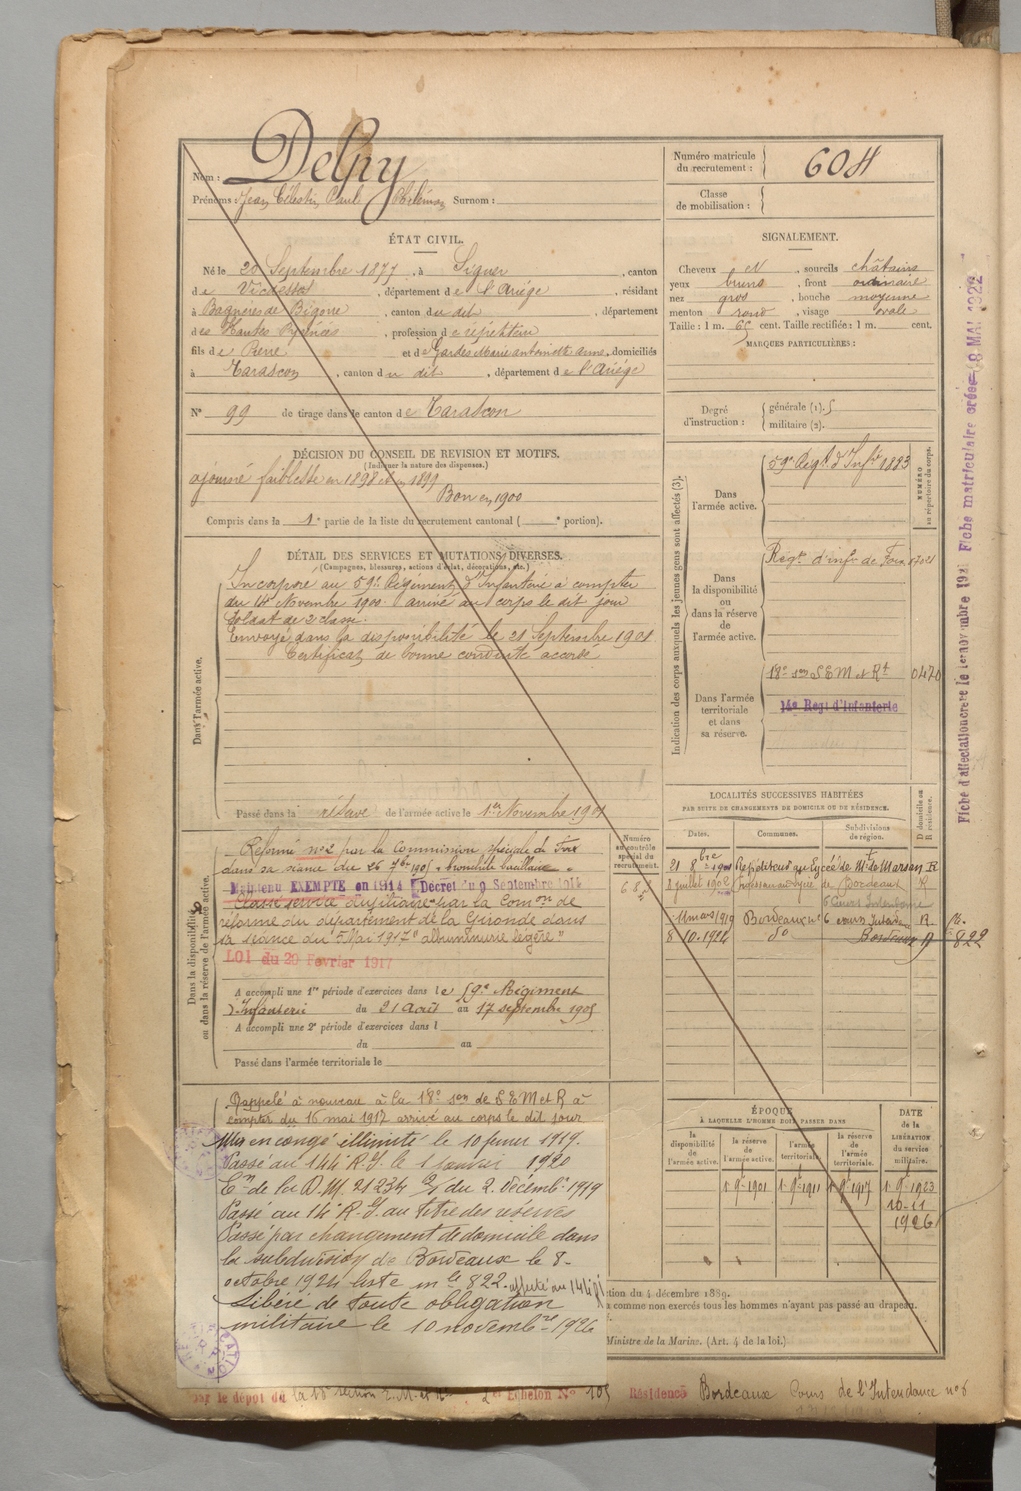 Nom : Delpy
Prénoms : Jean Célestin Paul Surnom :
Numéro matricule du recrutement : 604
Classe de mobilisation :
ÉTAT CIVIL.
Né le 20 Septembre 1877, à Siguer, canton
de Vicdessos, département de l'Ariège, résidant
à Bagnères de Bigorre, canton du dit, département
des Hautes Pyrénées, profession de répétiteur
fils de Pierre et de Gardes Marie antoinette anne, domiciliés
à Tarascon, canton du dit, département de l'Ariège
N° 99 de tirage dans le canton de Tarascon
SIGNALEMENT.
Cheveux N, sourcils châtains
yeux bruns, front ordinaire
nez gros, bouche moyenne
menton rond, visage ovale
Taille : 1 m. 65 cent. Taille rectifiée : 1 m. cent.
MARQUES PARTICULIÈRES :
Degré d'instruction : générale (1). 5
militaire (2).
DÉCISION DU CONSEIL DE REVISION ET MOTIFS.
(Indiquer la nature des dispenses.)
ajourné faiblesse en 1898 et en 1899
Bon en 1900
Compris dans la 1e partie de la liste du recrutement cantonal ( e portion).
DÉTAIL DES SERVICES ET MUTATIONS DIVERSES.
(Campagnes, blessures, actions d'éclat, décorations, etc.)
Dans l'armée active.
Incorporé au 59e Régiment d'Infanterie à compter
du 14 Novembre 1900 arrivé au corps le dit jour
soldat de 2e classe.
Envoyé dans la disponibilité le 21 Septembre 1901
Certificat de bonne conduite accordé
Passé dans la réserve de l'armée active le 1er Novembre 1901
Indication des corps auxquels les jeunes gens sont affectés (3).
NUMÉRO au répertoire du corps.
Dans l'armée active.
59e Régt d'Infie 1883
Dans la disponibilité ou dans la réserve de l'armée active.
Régt d'infie de Foix
Dans l'armée territoriale et dans sa réserve.
18e son S E M et Rt 0470
14e Regt d'Infanterie
Fiche matriculaire créée 8 MAI 1922
LOCALITÉS SUCCESSIVES HABITÉES
PAR SUITE DE CHANGEMENTS DE DOMICILE OU DE RÉSIDENCE.
Dates. Communes. Subdivisions de région. D domicile ou R résidence.
21 8bre 1901 Répétiteur au Lycée de Mt de Marsan R
8 juillet 1902 de Bordeaux R
6 Cours Intendance
11 mars 1919 Bordeaux 6 cours Intendance R
8 10.1924 do Bordeaux 822
Numéro au contrôle spécial du recrutement.
Dans la disponibilité ou dans la réserve de l'armée active.
Réformé no 2 par la Commission spéciale de Foix
dans sa séance du 26 7bre 1905
Maintenu EXEMPTÉ en 1914 Décret du 9 Septembre 1914
Classé service auxiliaire par la Comon de
réforme du département de la Gironde dans
sa séance du 5 Mai 1917 "albuminurie légère"
LOI du 20 Février 1917
A accompli une 1re période d'exercices dans le 59e Régiment
d'Infanterie du 21 août au 17 septembre 1905
A accompli une 2e période d'exercices dans l
du au
Passé dans l'armée territoriale le
Rappelé à nouveau à la 18e son de S E M et R à
compter du 16 mai 1917 arrivé au corps le dit jour
Mis en congé illimité le 10 février 1919.
Passé au 144 R.I. le 1 janvier 1920
Con de la D.M. 21234 du 2. décembre 1919
Passé au 14e R.I. au titre des réserves
Passé par changement de domicile dans
la subdivision de Bordeaux le 8-
octobre 1924 liste mle 822. affecté au 144 R.I
Libéré de toute obligation
militaire le 10 novembre 1926
ÉPOQUE
À LAQUELLE L'HOMME DOIT PASSER DANS
la disponibilité de l'armée active. la réserve de l'armée active. l'armée territoriale. la réserve de l'armée territoriale.
DATE de la LIBÉRATION du service militaire.
1 9e 1901 1 9e 1911 1 9e 1917 1 9e 1923
10-11
1926
tion du 4 décembre 1889.
a comme non exercés tous les hommes n'ayant pas passé au drapeau.
Ministre de la Marine. (Art. 4 de la loi.)
par le dépôt du la 18e section E.M. et R 2e Echelon No 105 Résidence Bordeaux Cours de l'Intendance no 6